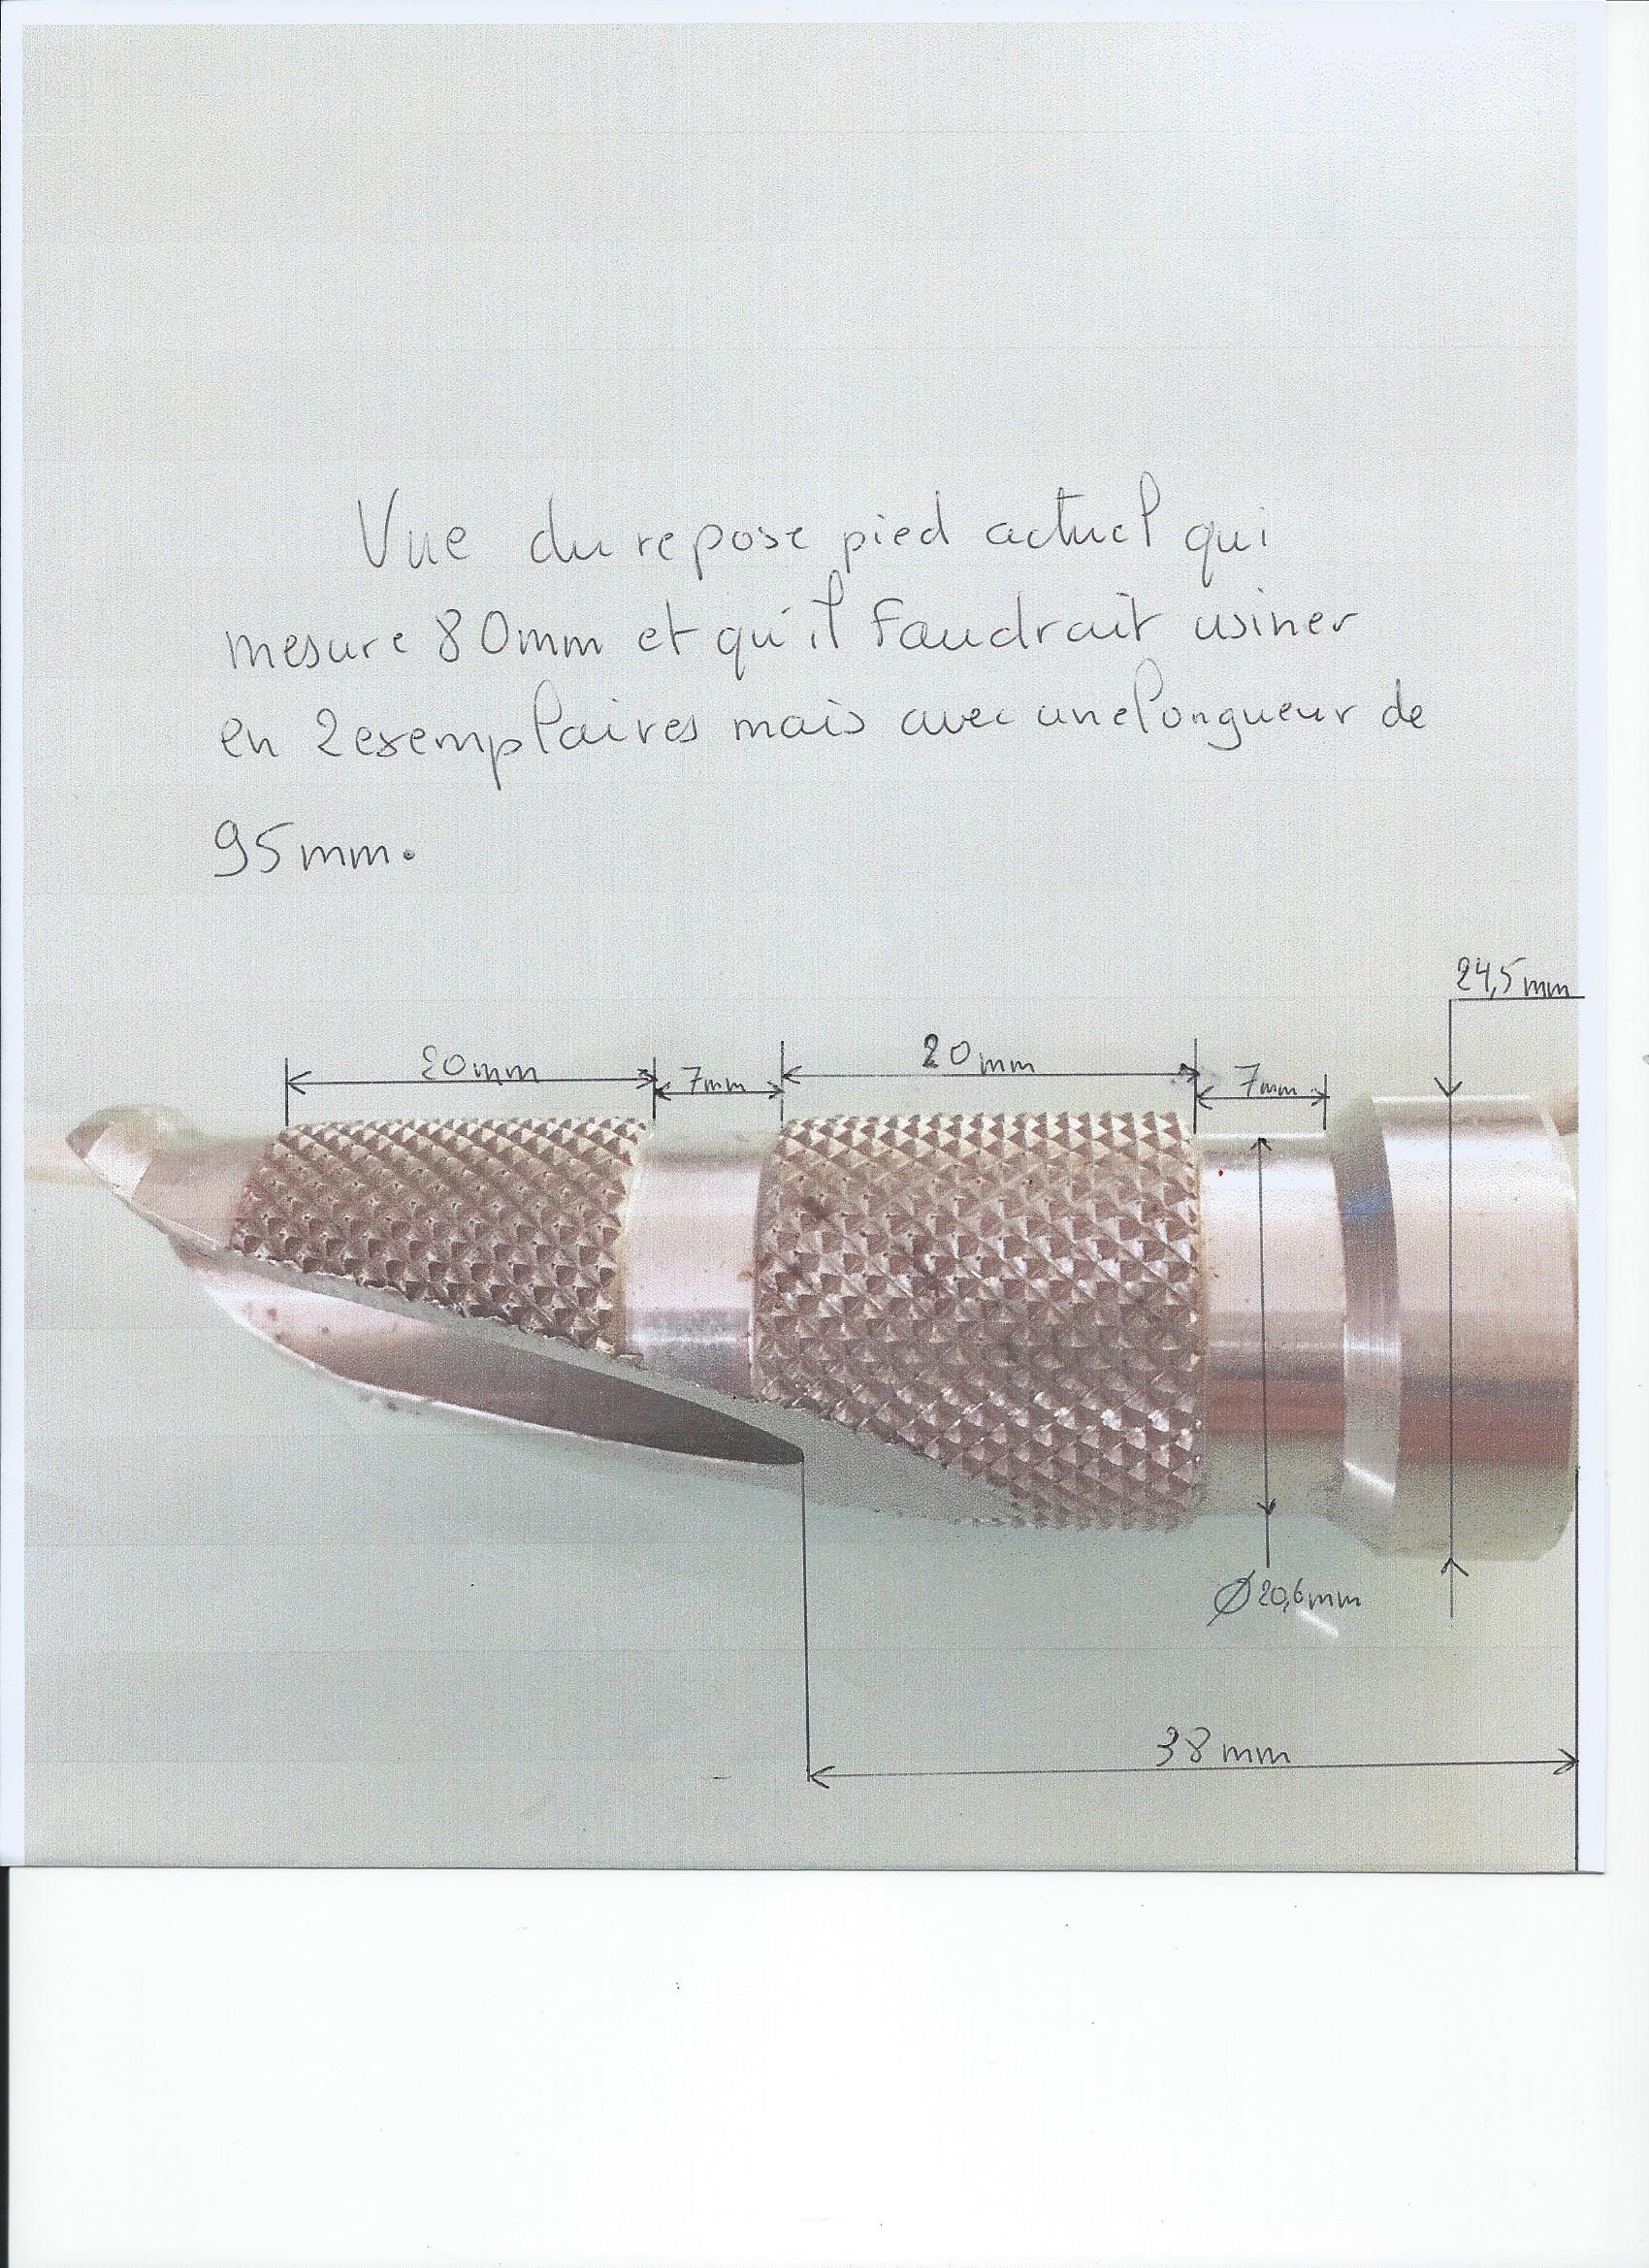 Vue du repose pied actuel qui
mesure 80mm et qu'il faudrait usiner
en 2 exemplaires mais avec une longueur de
95mm.
24,5 mm
20mm
7mm
20mm
7mm
Ø 20,6mm
38 mm